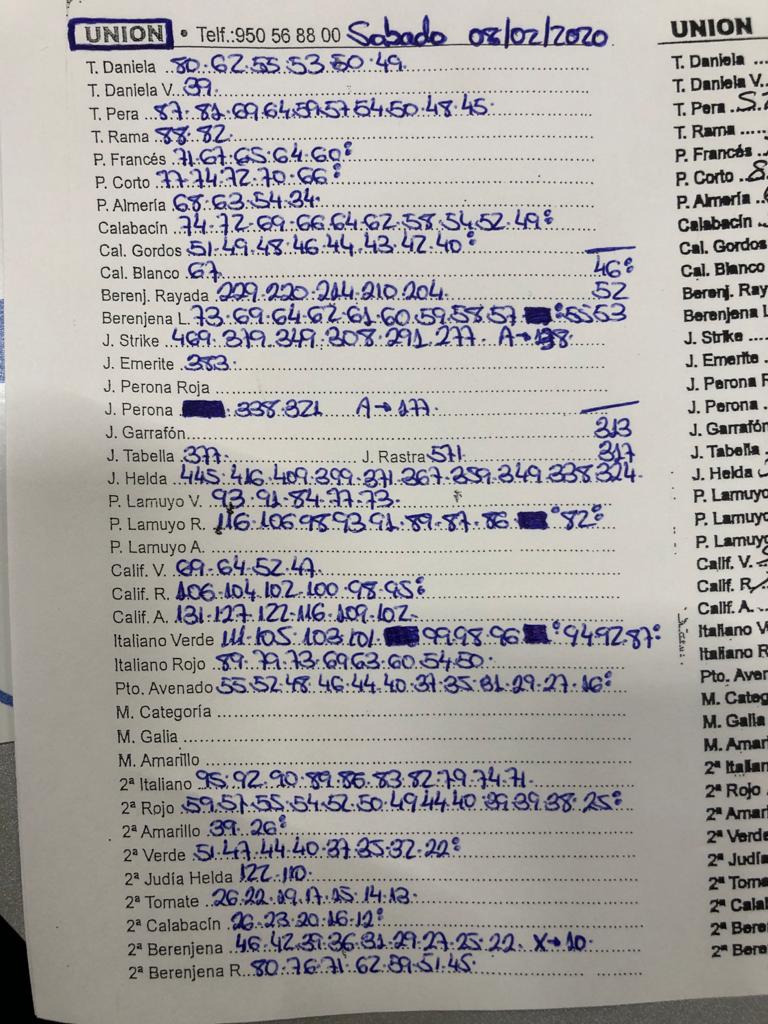 UNION • Telf.:950 56 88 00 Sabado 08/02/2020
T. Daniela 80·62·55·53·50·49
T. Daniela V. 39
T. Pera 87·81·69·64·59·57·54·50·48·45
T. Rama 88·82
P. Francés 71·67·65·64·60:
P. Corto 77·74·72·70·66:
P. Almería 68·63·54·34
Calabacín 74·72·69·66·64·62·58·54·52·49:
Cal. Gordos 51·49·48·46·44·43·42·40:
Cal. Blanco 67 46:
Berenj. Rayada 229·220·214·210·204 52
Berenjena L. 73·69·64·62·61·60·59·58·57 :5553
J. Strike 469·379·349·308·291·277· A→
J. Emerite 383
J. Perona Roja
J. Perona 338·321 A→177
J. Garrafón 313
J. Tabella 377 J. Rastra 571 317
J. Helda 445·416·409·399·371·367·359·349·338·324
P. Lamuyo V. 93·91·84·77·73
P. Lamuyo R. 116·106·98·93·91·89·87·86 :82:
P. Lamuyo A.
Calif. V. 69·64·52·47
Calif. R. 106·104·102·100·98·95:
Calif. A. 131·127·122·116·109·102
Italiano Verde 111·105·103·101 99·98·96 :94·92·87:
Italiano Rojo 89·79·73·69·63·60·54·50
Pto. Avenado 55·52·48·46·44·40·37·35·31·29·27·16:
M. Categoría
M. Galia
M. Amarillo
2ª Italiano 95·92·90·89·86·83·82·79·74·71
2ª Rojo 59·57·55·54·52·50·49·44·40·39·39·38·25:
2ª Amarillo 39·26:
2ª Verde 51·47·44·40·37·35·32·22:
2ª Judía Helda 122·110
2ª Tomate 26·22·19·17·15·14·13
2ª Calabacín 26·23·20·16·12:
2ª Berenjena 46·42·39·36·31·29·27·25·22 X→10
2ª Berenjena R. 80·76·71·62·59·51·45
UNION
T. Daniela
T. Daniela V.
T. Pera
T. Rama
P. Francés
P. Corto
P. Almería
Calabacín
Cal. Gordos
Cal. Blanco
Berenj. Ray
Berenjena
J. Strike
J. Emerite
J. Perona
J. Perona
J. Garrafón
J. Tabella
J. Helda
P. Lamuyo
P. Lamuyo
P. Lamuyo
Calif. V.
Calif. R.
Calif. A.
Italiano V
Italiano R
Pto. Aven
M. Categ
M. Galia
M. Amar
2ª Italian
2ª Rojo
2ª Amar
2ª Verde
2ª Judí
2ª Toma
2ª Cala
2ª Bere
2ª Bere